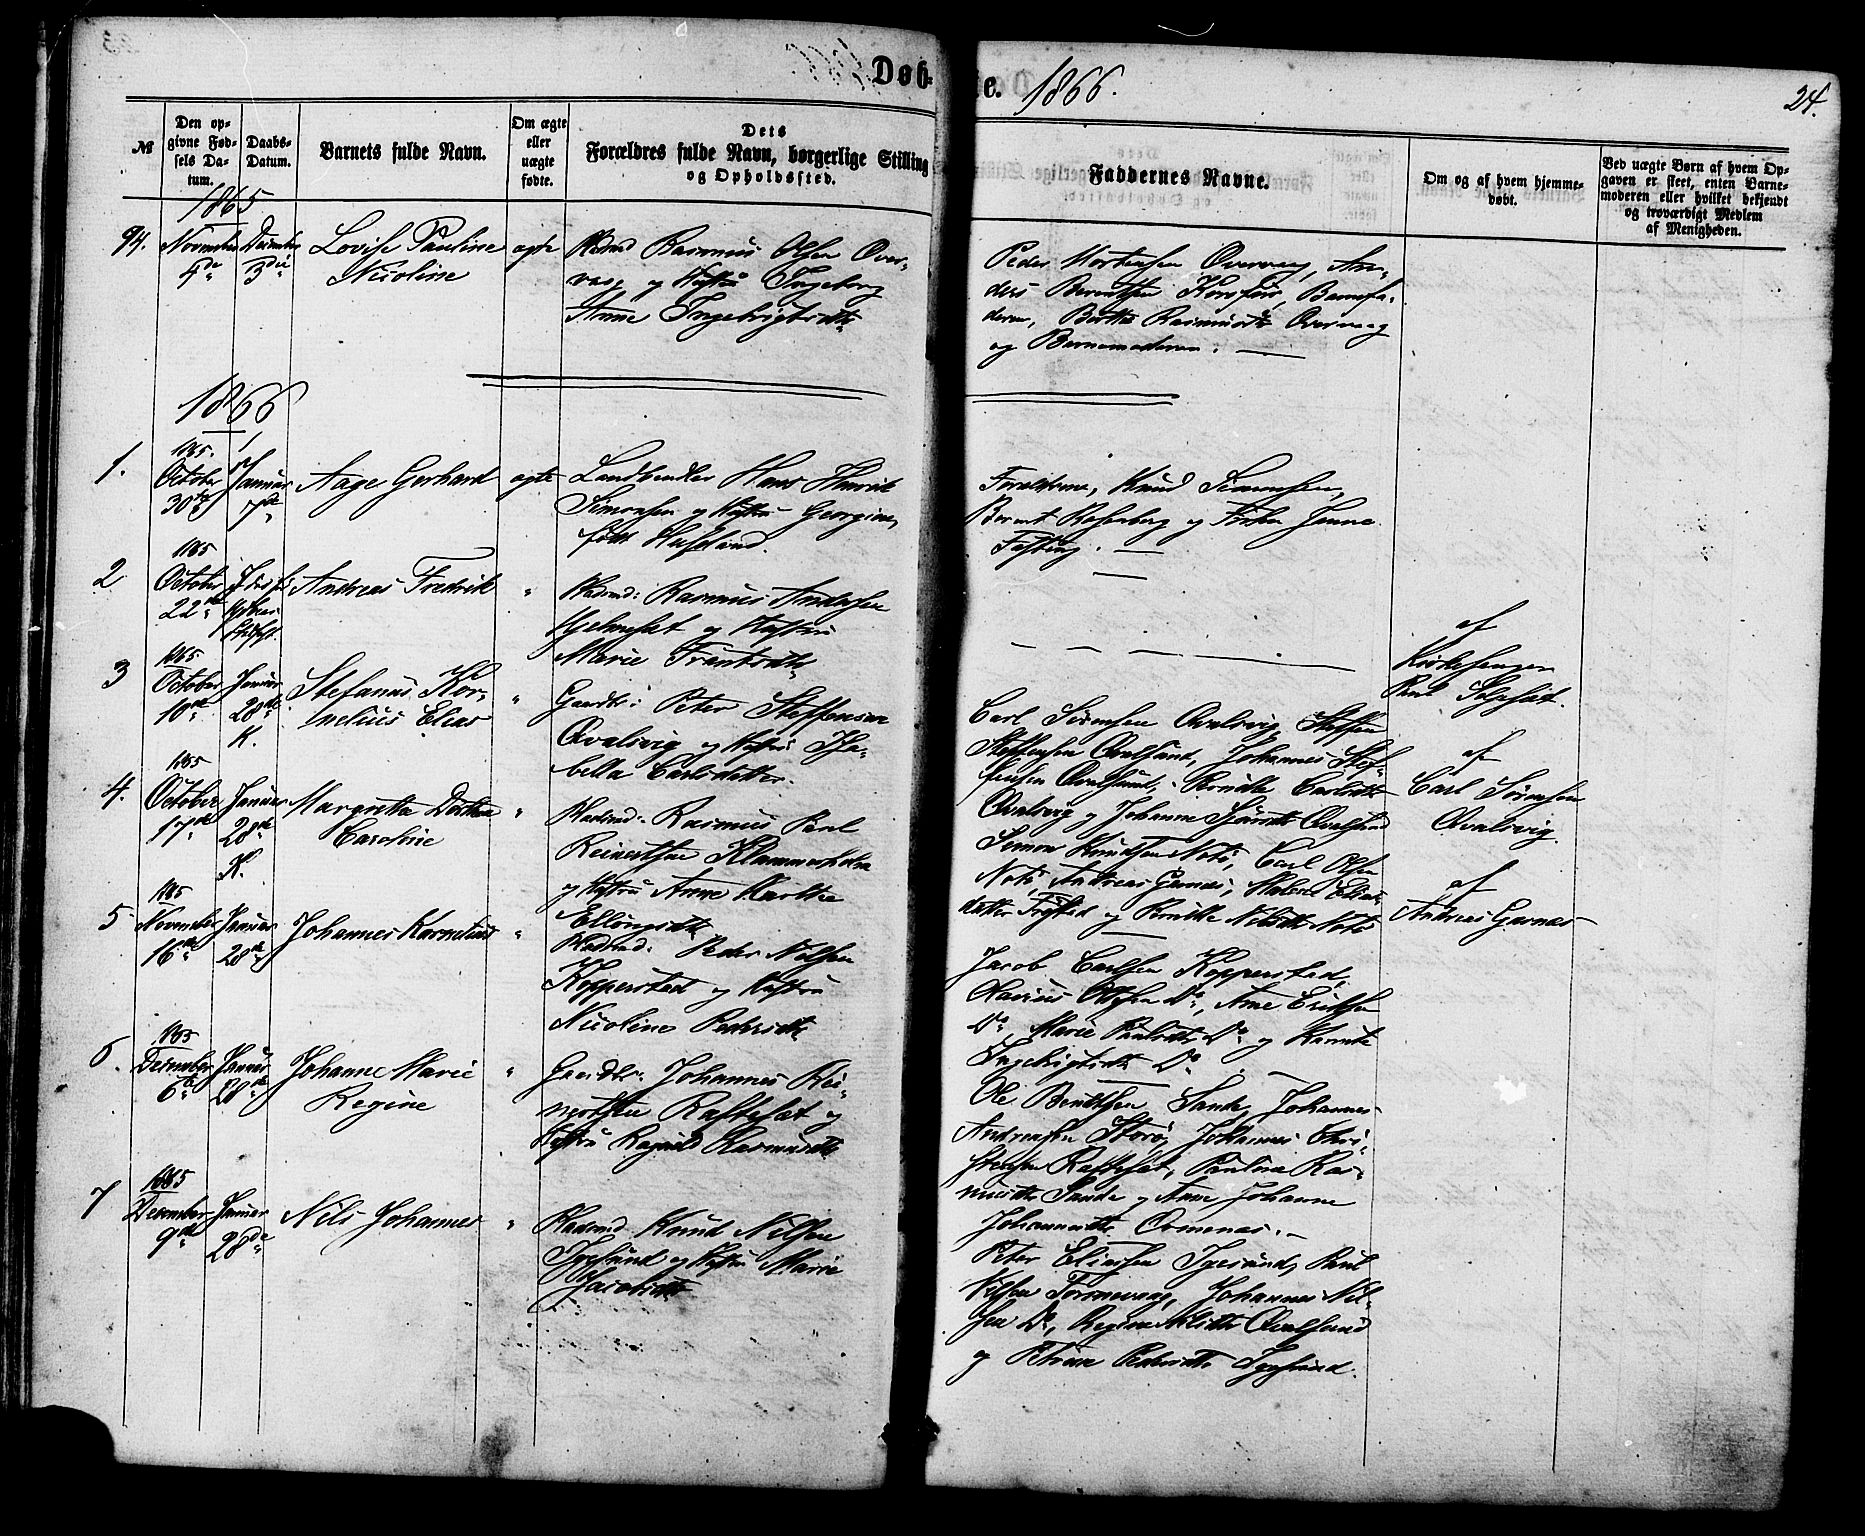 Døb-
te. 1866.
24.
№
Den op-
givne Fød-
sels Da-
tum.
Daabs-
Datum.
Barnets fulde Navn.
Om ægte
eller
uægte
fødte.
Dets
Forældres fulde Navn, borgerlige Stilling
og Opholdssted.
Faddernes Navne.
Om og af hvem hjemme-
døbt.
Ved uægte Børn af hvem Op-
gaven er skeet, enten Barne-
moderen eller hvilket bekjendt
og troværdigt Medlem
af Menigheden.
1865
94.
November
4de
December
3die
Lovise Pauline
Nicoline
ægte
Rasmus Olsen Over-
vaag og Hustru Ingeborg
Anne Ingebrigtsdtr
Peder Mortensen Overvaag, An-
ders Berntsen Korsfur, Barnefa-
deren, Berthe Rasmusdtr Overvaag
og Barnemoderen.
1866
1.
1865.
October
30te
Januar
7de
Aage Gerhard
ægte
Landhandler Hans Henrik
Simonsen og Hustru Georgine,
født
Forældrene, Knud Simonsen,
Bernt Rosenberg og Frøken Janna
Fasting.
2
1865
October
22de
Andreas Fredrik
"
Rasmus Andersen
Hjelmeset og Hustru
Marie Frantsdtr
af
Kirkesanger
Paul Solgset.
3
1865.
October
10de
Januar
28de
K.
Stefanus Kor-
nelius Elias
"
Gaardbr: Peter Steffensen
Qvalsvig og Hustru Isa-
bella Carlsdatter.
Carl Sørensen Qvalsvig, Steffen
Steffensen Qvalsund, Johannes Stef-
fensen Qvalsund, Carlsdtr
Qvalsvig og Johanne Qvalsund
af
Carl Sørensen
Qvalsvig.
4.
1865
October
17de
Januar
28de
K.
Margrethe Dorthea
Caroline
"
Rasmus Paul
Reinertsen Klammerholm
og Hustru Anne Marthe
Ellingsdtr
Simon Knudsen Notø, Carl Olsen
Notø, Andreas Garnæs, Elias-
datter og Nilsdtr Notø
af
Andreas Garnæs
5
1865
November
16de
Januar
28de
Johannes Kornelius
"
Peder Nilsen
Kopperstad og Hustru
Nicoline Pedersdtr
Jacob Carlsen Kopperstad,
Olsen Do, Arne Eriksen
Do, Marie Paulsdtr Do og
Ingebrigtsdtr Do.
6.
1865
December
6te
Januar
28de
Johanne Marie
Regine
"
Gaardbr: Johannes Rei-
nertsen Rafteset og
Hustru Ragnild Rasmusdtr
Ole Berntsen Sande, Johannes
Andreasen Storø, Johannes Chri-
stensen Rafteset, Pauline Ras-
musdtr Sande og Anne Johanne
Johannesdtr Ormenæs.
7
1865
December
9de
Januar
28de
Nils Johannes
"
Knud Nilsen
Igesund og Hustru Marie
Jacobsdtr
Peter Eliassen Igesund, Paul
Nilsen Torvnevaag, Johannes Nil-
sen Do, Regine Nilsdtr Qvalsund
og Petrine Pedersdtr Igesund.